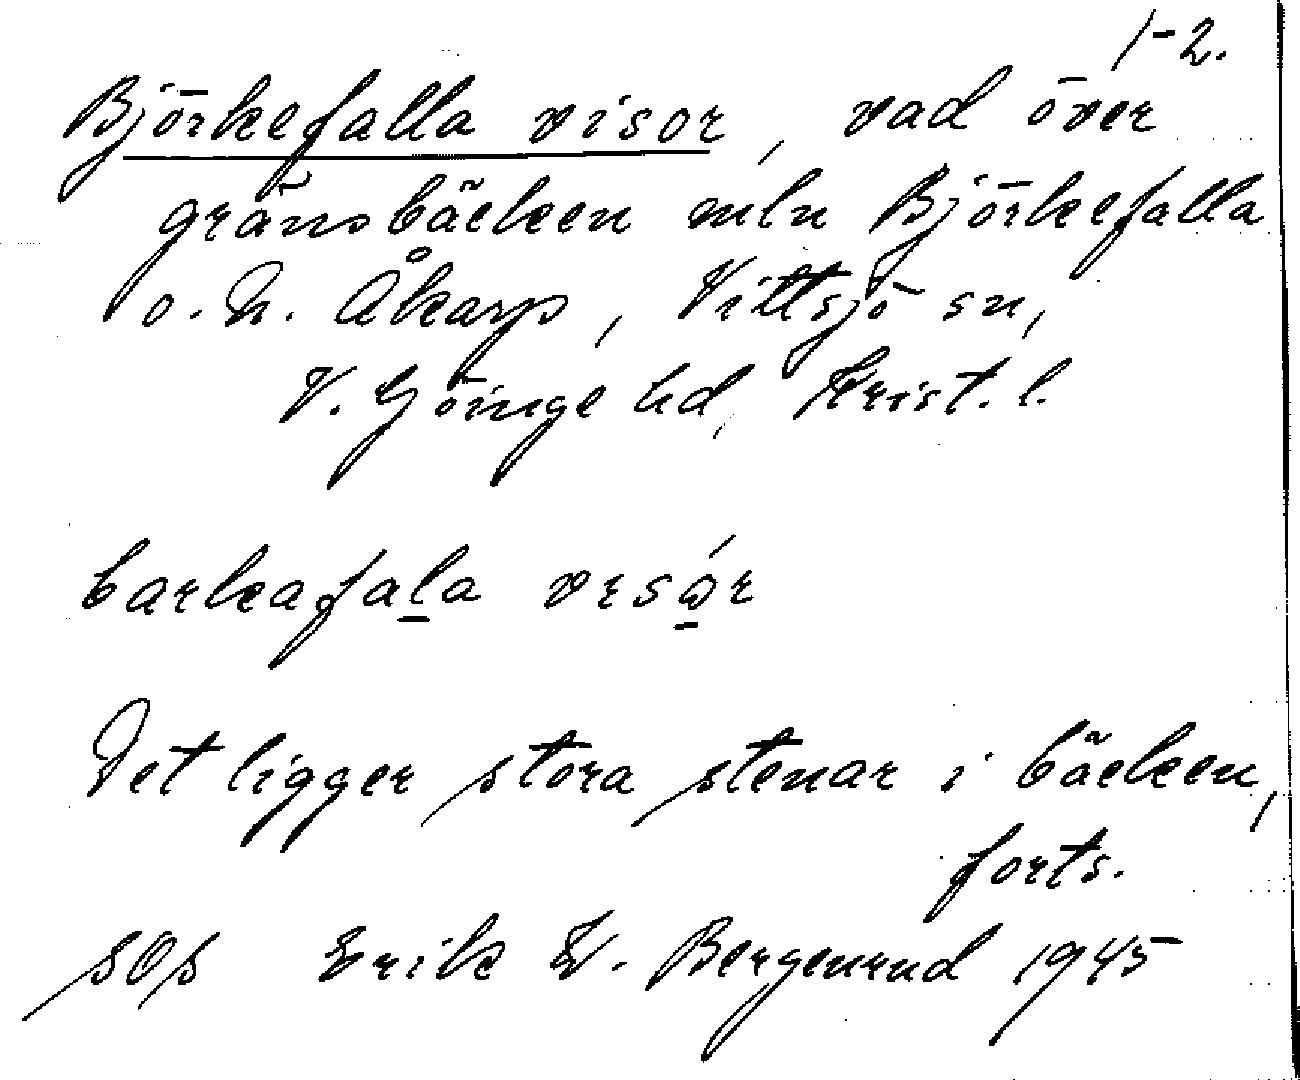 1-2.
Björkefalla visor, vad över
gränsbäcken mln Björkefalla
o. N. Åkarp, Vittsjö sn,
V. Göinge hd, Krist. l.
barkafala vısór
Det ligger stora stenar i bäcken,
forts.
sOs Erik W. Bergenrud 1945